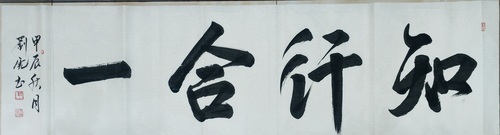 知行合一
甲辰秋月
劉成书